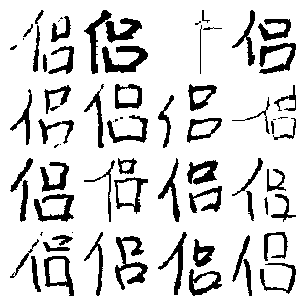 侣 侣 侣
侣 侣 侣 侣
侣 侣 侣 侣
侣 侣 侣 侣